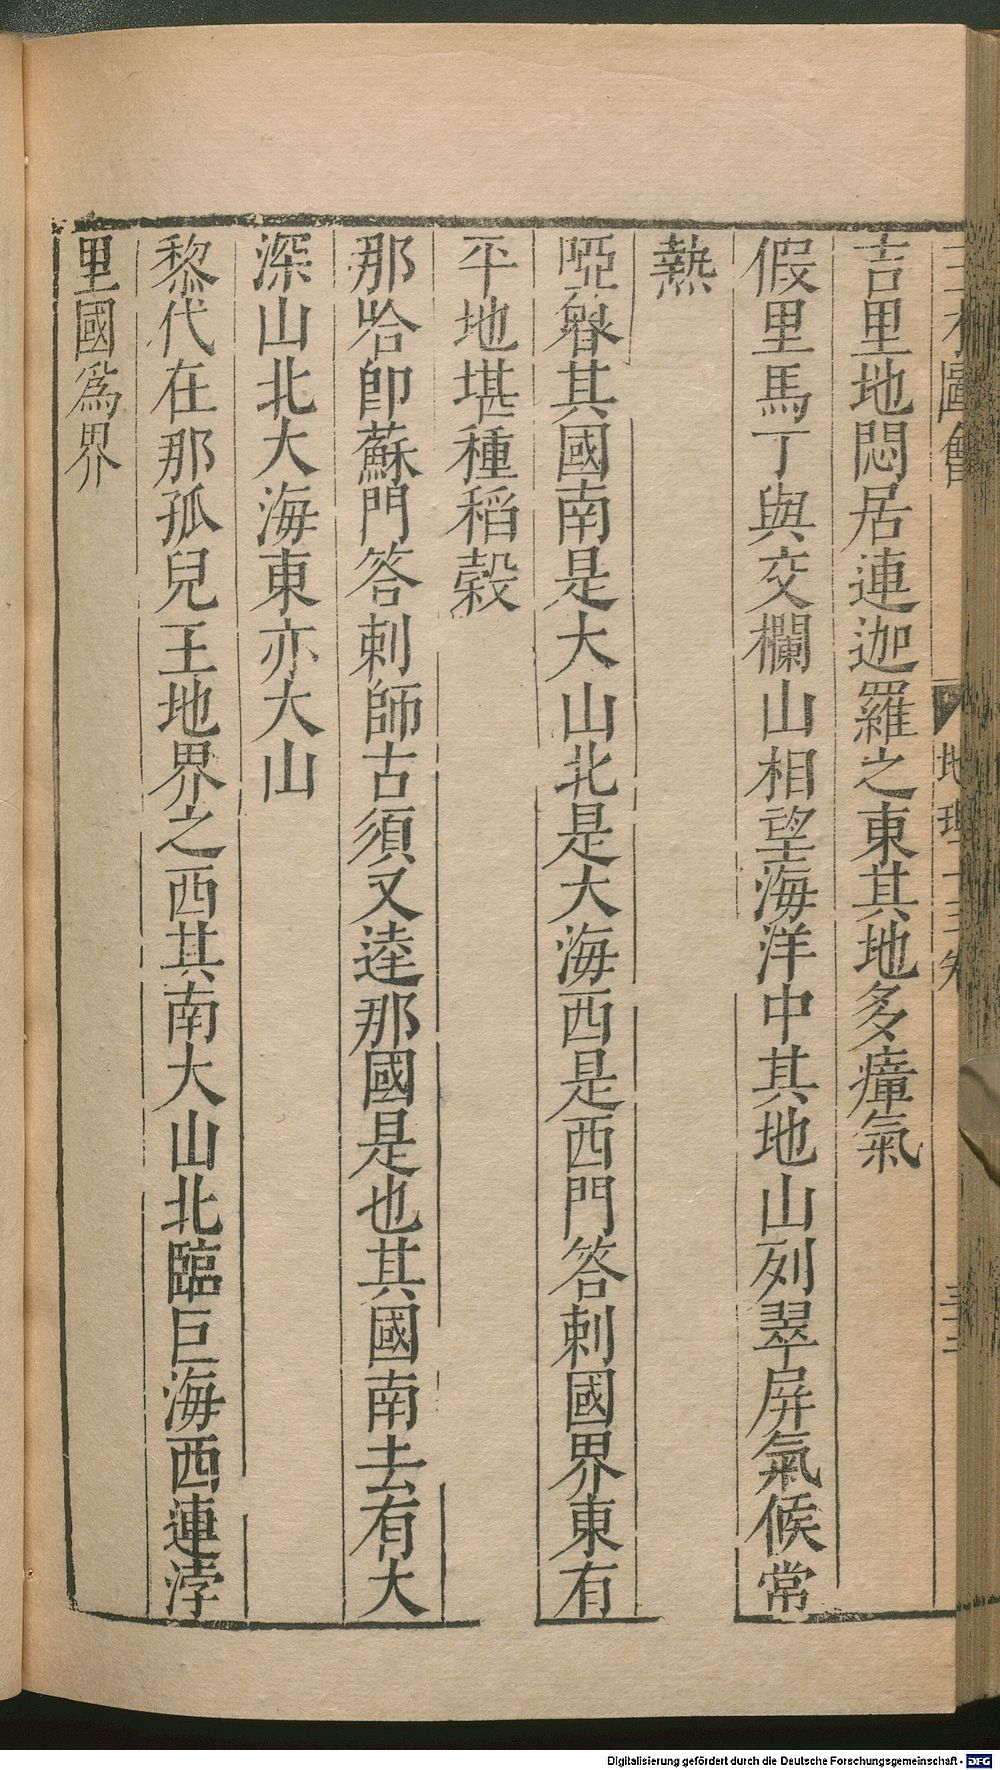 三才圖會 地理十三卷 三十三
吉里地悶居連迦羅之東其地多瘴氣
假里馬丁與交欄山相望海洋中其地山列翠屏氣候常
熱
啞魯其國南是大山北是大海西是西門答剌國界東有
平地堪種稻穀
那哈卽蘇門答剌師古須又逵那國是也其國南去有大
深山北大海東亦大山
黎代在那孤兒王地界之西其南大山北臨巨海西連浡
里國爲界
Digitalisierung gefördert durch die Deutsche Forschungsgemeinschaft - DFG